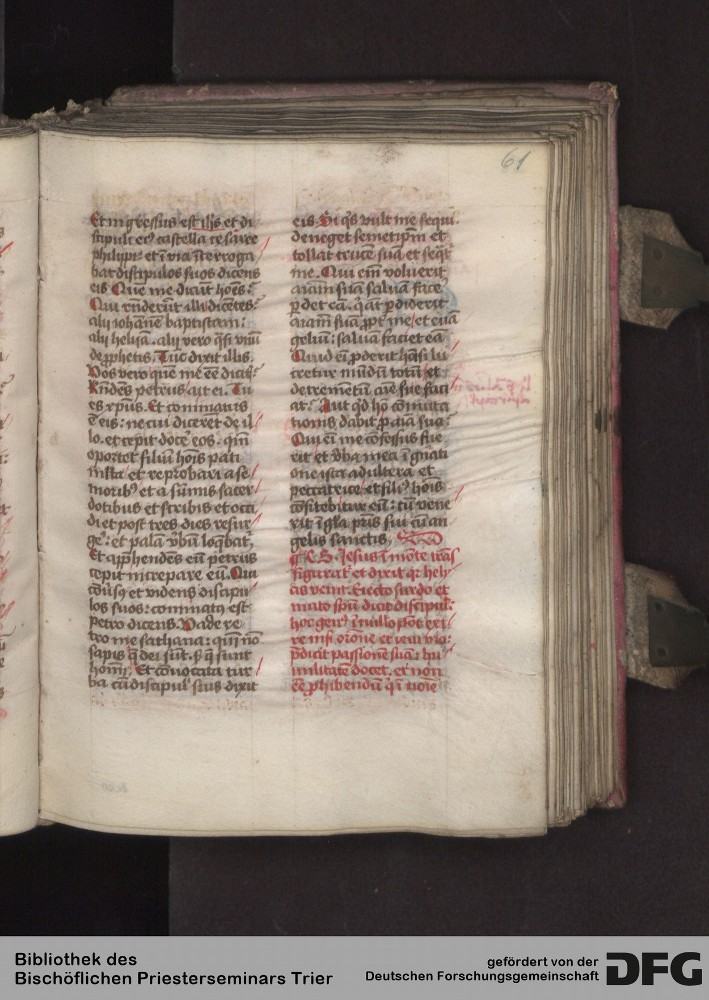 61
Et ingressus est ihs et di
scipuli eius castella cesaree
philippi et i via iterroga
bat discipulos suos dicens
eis Que me dicut hoies
Qui rnderut illi dicetes
alij iohanne baptistam:
alij heliam. alij vero qsi vnu
de pphetis. Tuc dixit illis.
Vos vero que me ee dicit
Rndens petrus ait ei. Tu
es xpus. Et cominatus
e eis: ne cui diceret de il
lo. et cepit doce eos. qm
oportet filiu hois pati
multa et reprobari a se
moribus et a summis sacer
dotibus et scribis et occi
di et post tres dies resur
ge: et pala vbu loqbat
Et apphendens eu petrus
cepit increpare eu. Qui
couersus et videns discipu
los suos: cominatus est
petro dicens. Vade re
tro me sathana: qm no
sapis q dei sut. s q sunt
homi. Et couocata tur
ba cu discipulis suis dixit
eis Si qs vult me sequi.
deneget semetipm et
tollat cruce sua et seqt
me. Qui eni voluerit
aiam sua salua face
pdet ea. q at pdiderit
aiam sua ppt me et eua
geliu: salua faciet ea
Quid ei pderit ho si lu
cretur mudu totu et
detremetu aie sue faci
at: Aut qd ho comuta
tionis dabit p aia sua:
Qui ei me cofessus fue
rit et vba mea i gnati
one ista adultera et
peccatrice et filius hois
cofitebitur eu: cu vene
rit i gla pris sui cu an
gelis sanctis
Jesus i monte tras
figurat et dixit qr hely
as venit. Eiecto surdo et
muto spu dicit discipul
hoc genus i nullo pot exi
re nisi orone et ieiunio:
pdicit passione sua: hu
militate docet. et non
ee phibendu q i noie
Bibliothek des
Bischöflichen Priesterseminars Trier
gefördert von der
Deutschen Forschungsgemeinschaft
DFG